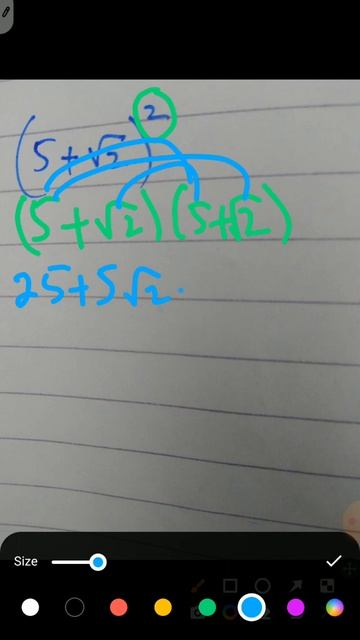 (5+√2)²
(5+√2)(5+√2)
25+5√2.
Size